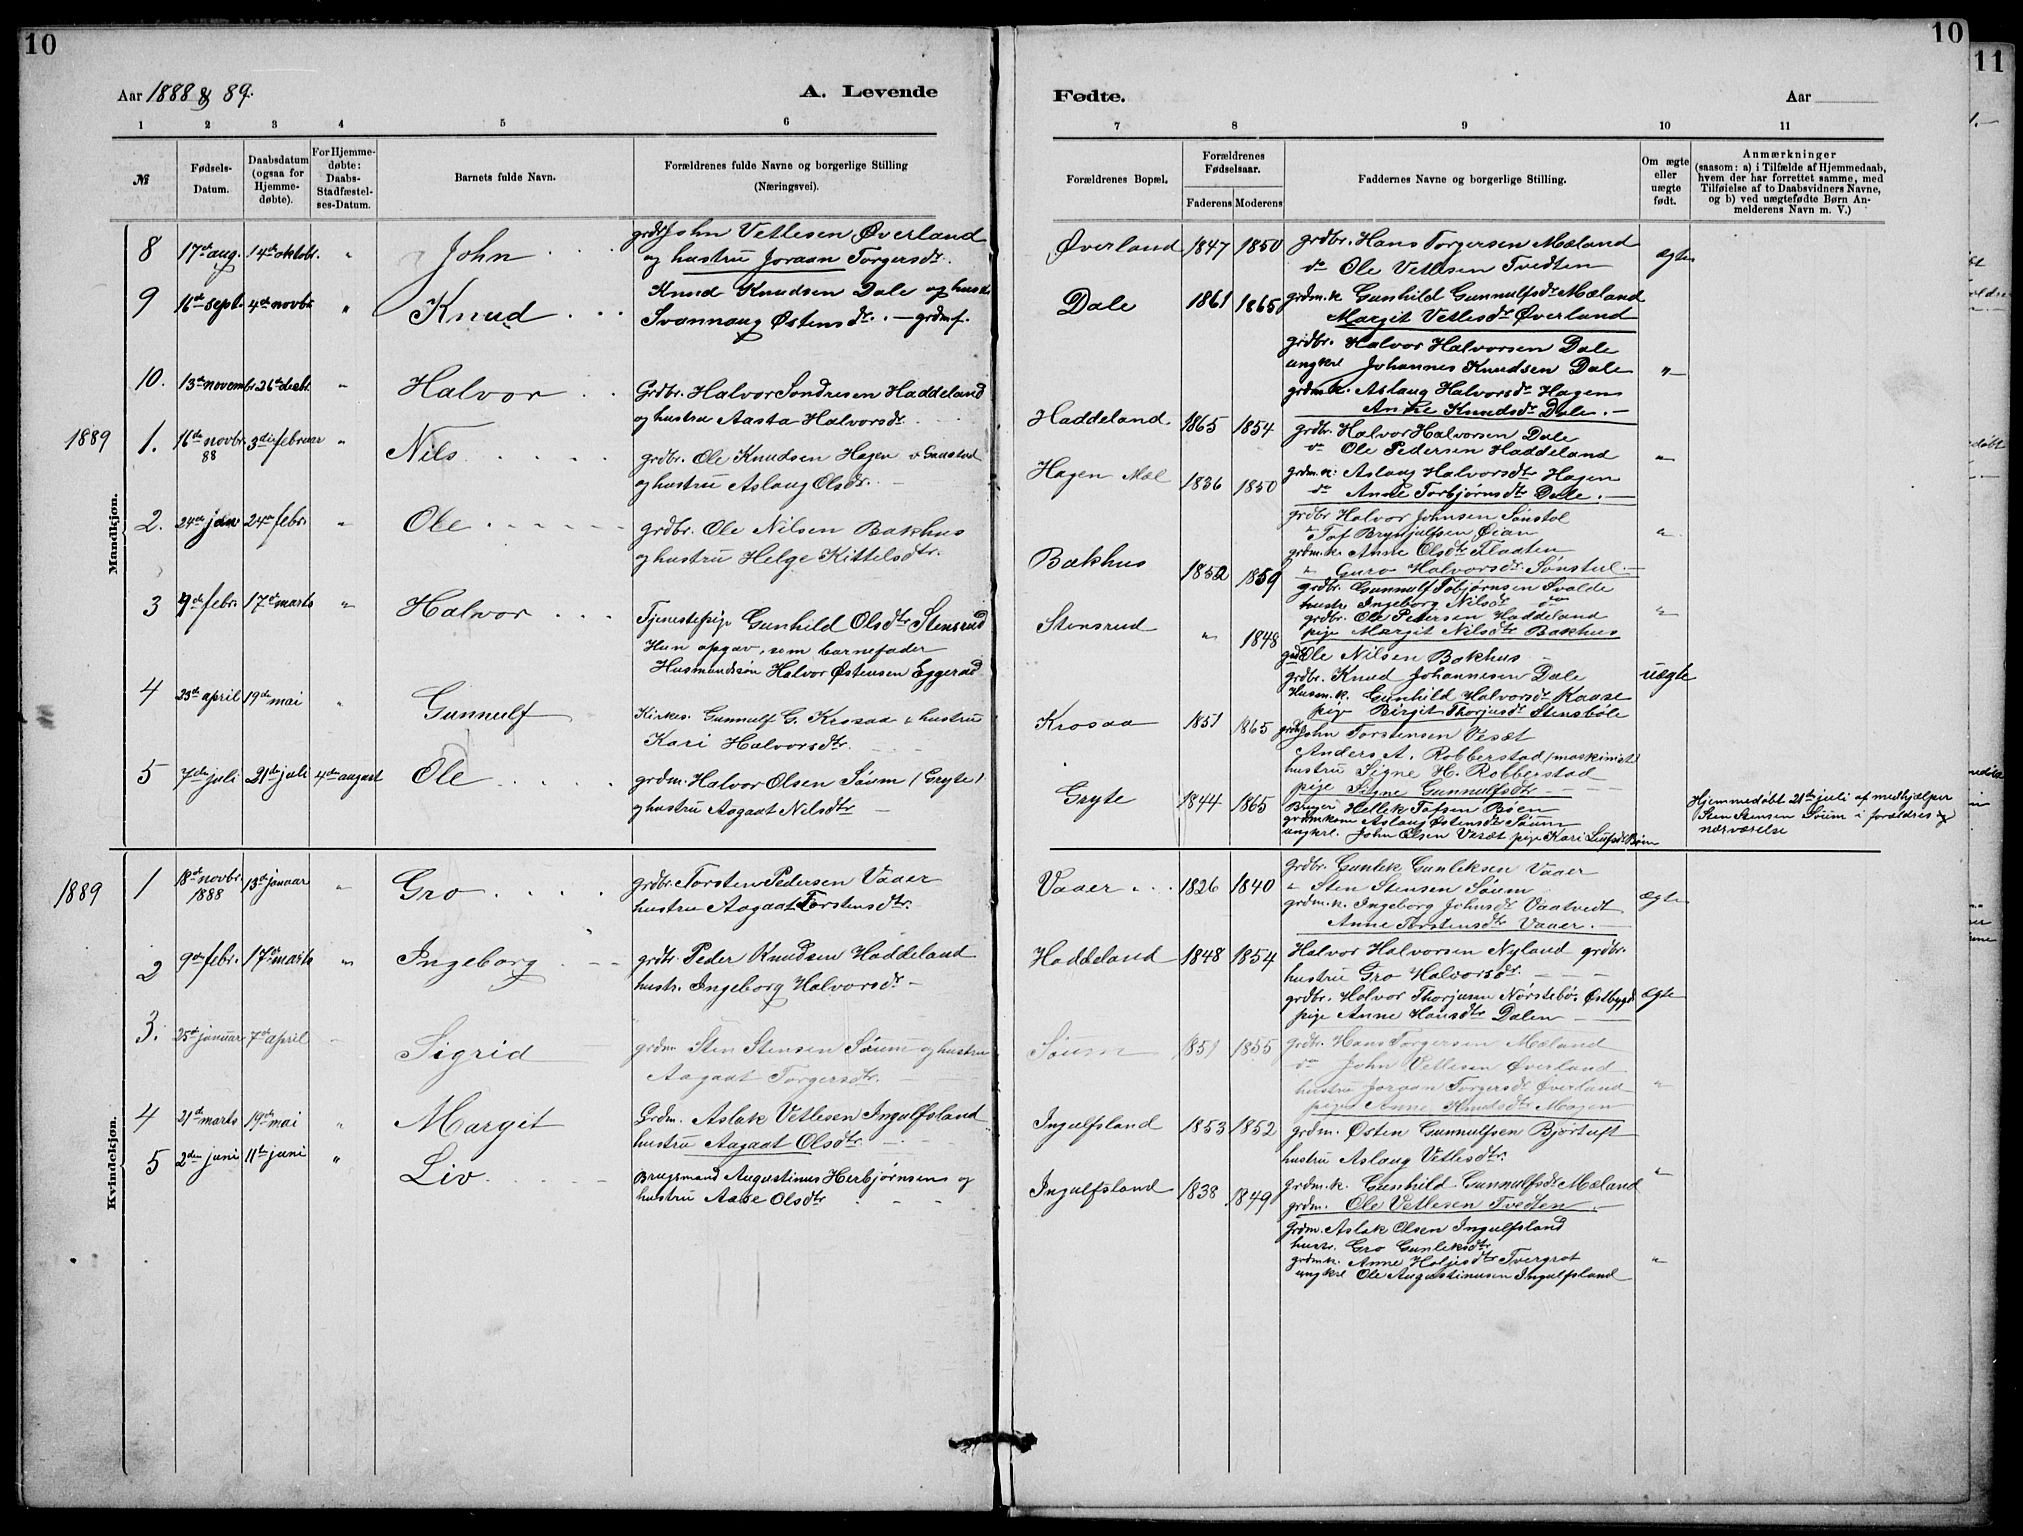 10
Aar 1888 & 89.
A. Levende
1 2 3 4 5 6
№
Fødsels-Datum.
Daabsdatum (ogsaa for Hjemme-døbte).
For Hjemme-døbte: Daabs-Stadfæstel-ses-Datum.
Barnets fulde Navn.
Forældrenes fulde Navne og borgerlige Stilling
(Næringsvei).
Mandkjøn.
8 17de aug. 14de oktobr. " John grdbr John Vetlesen Øverland
og hustru Joraan Torgersdtr.
9 16de sept. 4de novbr. " Knud Knud Knudsen Dale og hustr.
Svannaug Østensdtr. – grdmf.
10. 13de novembr 26de decbr. " Halvor Grdbr. Halvor Sondresen Haddeland
og hustru Aasta Halvorsdtr.
1889
1. 16de novbr. 88 3die februar " Nils grdbr. Ole Knudsen Hagen
og hustru Aslaug Olsdtr. –
2. 24de jan 24de febr. " Ole grdbr. Ole Nilsen Bakhus
og hustru Helge Kittelsdtr.
3 9de febr. 17de marts " Halvor Tjenestepige Gunhild Olsdtr Stensrud
Hun opgav, som barnefader
Husmandssøn Halvor Østensen Eggerud
4 23de april 19de mai " Gunnulf Kirkes. Gunnulf G. Krosaa & hustru
Kari Halvorsdtr.
5 7de juli 21de juli 4de august Ole grdm. Halvor Olsen Søum (Gryte)
og hustru Aagaat Nilsdtr –
Kvindekjøn.
1889
1 18de novbr. 1888 13de januar " Gro grdbr. Torsten Pedersen Vaaer
hustru Aagaat Torstensdtr.
2 9de febr. 17de marts " Ingeborg grdbr. Peder Knudsen Haddeland
hustr. Ingeborg Halvorsdtr –
3. 25de januar 7de april Sigrid grdm. Sten Stensen Søum og hustru
Aagaat Torgersdtr.
4 21de marts 19de mai " Margit Grdm. Aslak Vetlesen Ingulfsland
hustru Aagaat Olsdtr.
5 2den juni 11te juni " Liv Brugsmand Augustinus Herbjørnsens og
hustru Aase Olsdtr
10
11
Fødte.
Aar
7 8 9 10 11
Forældrenes Bopæl.
Forældrenes Fødselsaar.
Faderens Moderens
Faddernes Navne og borgerlige Stilling.
Om ægte eller uægte født.
Anmærkninger
(saasom: a) i Tilfælde af Hjemmedaab, hvem der har forrettet samme, med Tilføielse af to Daabsvidners Navne, og b) ved uægtefødte Børn An-melderens Navn m. V.)
Øverland 1847 1850 grdbr. Hans Torgersen Mæland ægte
do Ole Vetlesen Tvedten
Dale 1861 1865 grdm.k Gunhild Gunnulfsdtr Mæland
Margit Vetlesdtr Øverland
grdbr. Halvor Halvorsen Dale
ungkrl Johannes Knudsen Dale "
grdm.k. Aslaug Halvorsdtr Hagen
Anne Knudsdtr Dale. –
Haddeland. 1865 1854 grdbr. Halvor Halvorsen Dale
do Ole Pedersen Haddeland "
Hagen Mæl 1836 1850 grdm.k: Aslaug Halvorsdtr Hagen
do Anne Torbjørnsdtr Dale. –
grdbr Halvor Johnsen Sønstol
" Tof Brynjulfsen Øian "
grdm.k. Anne Olsdtr Flaaten
Bakhus 1852 1859 " Guro Halvorsdtr. Sønstul. –
grdbr. Gunnulf Tobjørnsen Svalde
hustr. Ingeborg Nilsdtr do "
grdbr. Ole Pedersen Haddeland
Stensrud " 1848 pige Margit Nilsdtr Bakhus
grdbr Ole Nilsen Bakhus
grdbr. Knud Johannesen Dale uægte
Husm.k. Gunhild Halvorsdtr Kaase
pige Birgit Thorjusdtr Stensbøle
Krosaa 1851 1865 grdbr John Torstensen Vesæt
Anders A. Robberstad (maskinist)
hustru Signe H. Robberstad
pige Signe Gunnulfsdtr
Gryte 1844 1865 Bruger Hellik Tofsen Bøen
grdmkone Aslaug Østensdtr Søum
ungkrl. John Olsen Vesæt pige Kari Bøen
Hjemmedøbt 21de juli af medhjælper
Sten Stensen Søum i forældres
nærværelse
Vaaer 1826 1840 Grdbr. Gunlek Gunleksen Vaaer
" Sten Stensen Søum ægte
grdm.k. Ingeborg Johnsdtr Vaatvedt
Anne Torstensdtr Vaaer. –
Haddeland 1848 1854 Halvor Halvorsen Nyland grdbr.
hustru Gro Halvorsdtr.
grdbr. Halvor Thorjusen Nørstebø, Østbygd ægte
pige Anne Hansdtr Dalen
Søum 1851 1855 grdbr. Hans Torgersen Mæland
do John Vetlesen Øverland
hustru Joraan Torgersdtr Øverland "
pige Anne Knudsdtr Mogen
Ingulfsland 1853 1852 grdm. Østen Gunnulfsen Bjørtuft
hustru Aslaug Vetlesdtr. "
Ingulfsland 1838 1849 grdm.k. Gunhild Gunnulfsdtr Mæland
grdm. Ole Vetlesen Tvedten
Grdm. Aslak Olsen Ingulfsland
hustr. Gro Gunleksdtr
grdm.k. Anne Holjesdtr Tvergrot "
ungkrl Ole Augustinusen Ingulfsland